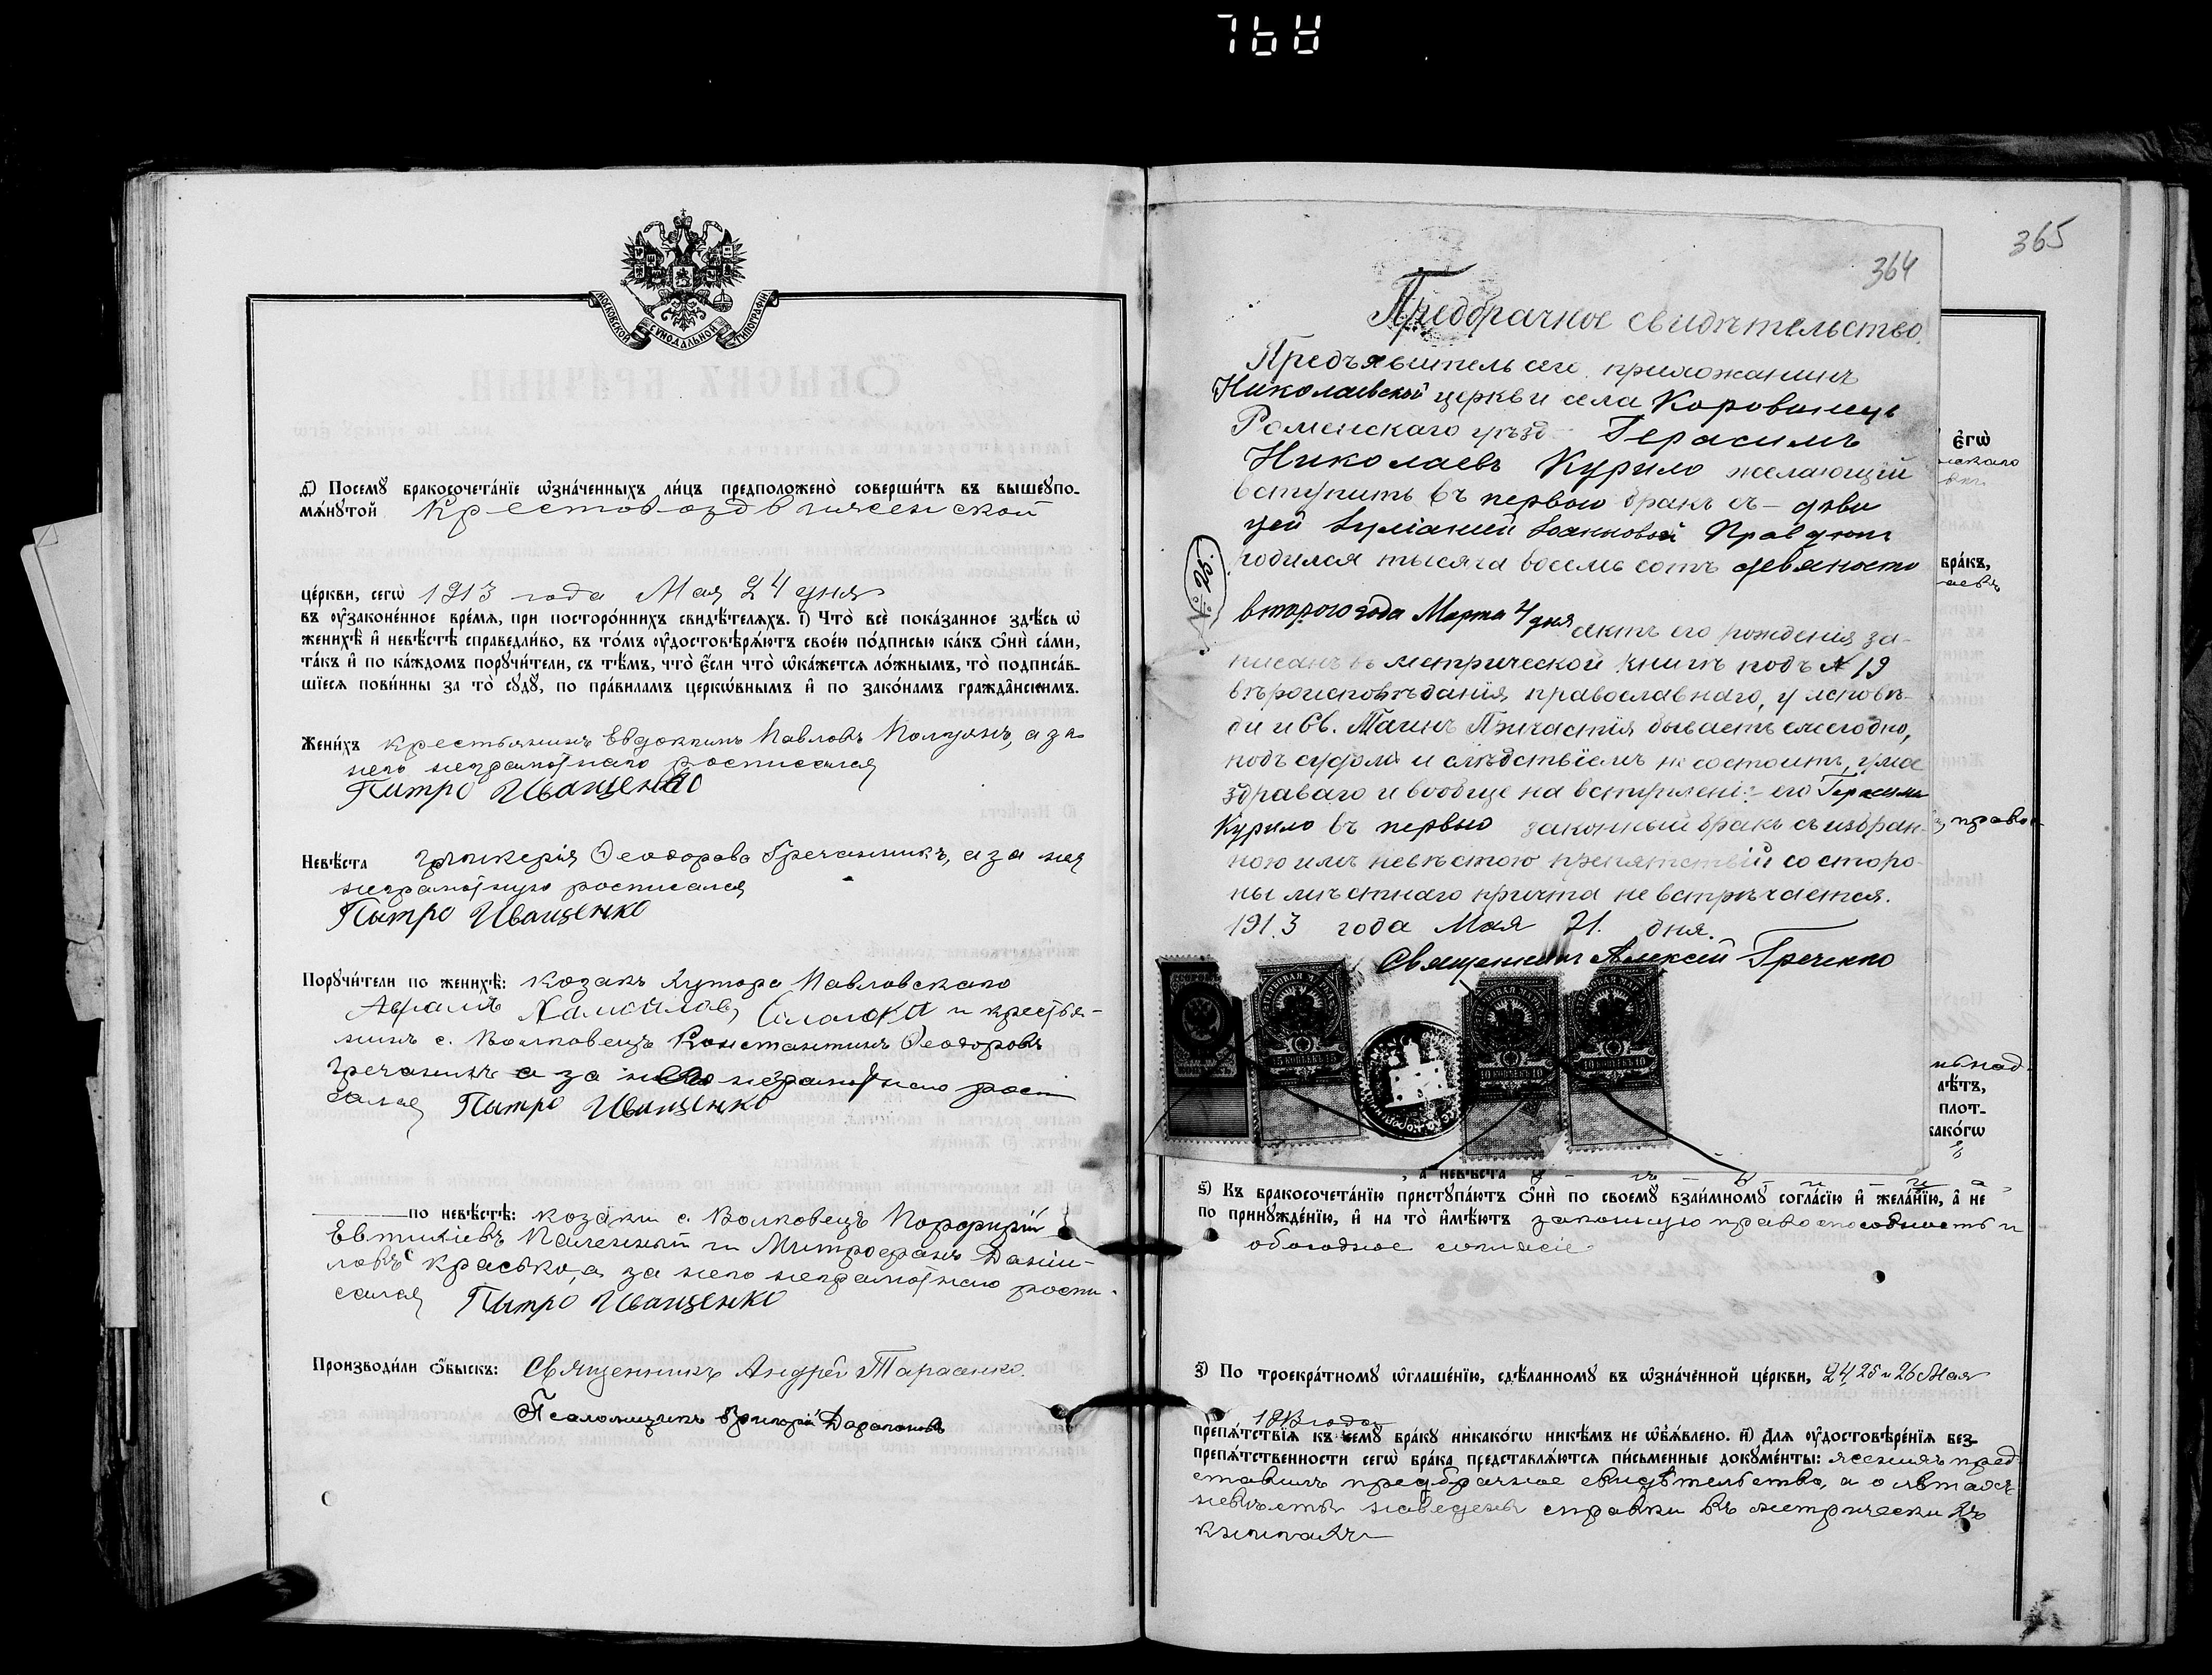 МОСКОВСКОЙ СУНОДАЛЬНОЙ ТИПОГРАФІИ
Посемꙋ бракосочета́нїе ѡ҆зна́ченныхъ ли́цъ предположено̀ соверши́ть въ вышеꙋпо-
мѧ́нꙋтой Крестовоздвиженской
це́ркви, сегѡ̀ 1913 года Мая 24 дня
въ ᲂу҆зако́ненное вре́мѧ, при посторо́ннихъ свидѣ́телѧхъ. і҃) Что̀ всѐ пока́занное здѣ́сь ѡ҆
женихѣ̀ и҆ невѣ́стѣ справедли́во, въ то́мъ ᲂу҆достовѣрѧ́ютъ свое́ю по́дписью ка́къ ѻ҆нѝ са́ми,
та́къ и҆ по ка́ждомъ порꙋчи́тели, съ тѣ́мъ, что̀ є҆́сли что̀ ѡ҆ка́жетсѧ ло́жнымъ, то̀ подписа́в-
шїесѧ пови́нны за то̀ сꙋдꙋ̀, по пра́виламъ церкѡ́внымъ и҆ по зако́намъ гражда̑нскимъ.
Жени́хъ крестьянинъ Евдокимъ Павловъ Полуянъ, а за
него неграмотнаго росписался
Питро Иващенко
Невѣ́ста Гликерія Ѳеодорова Гречаникъ, а за нея
неграмотную росписался
Питро Иващенко
Порꙋчи́тели по женихѣ̀: козакъ хутора Павловскаго
и крестья-
нинъ с. Волковецъ Константинъ Ѳеодоровъ
Гречаникъ а за него неграмотнаго роспи
сался Питро Иващенко
по невѣ́стѣ: козаки с. Волковецъ Порфирій
Евтихіевъ Паленный и Митрофанъ Даніи-
ловъ Красько, а за него неграмотнаго роспи-
сался Питро Иващенко
Производи́ли ѻ҆́быскъ: Священникъ Андрей Тарасенко.
Псаломщикъ Григорій
365
364
Предбрачное свидѣтельство.
Предъявитель сего прихожанинъ
Николаевской церкви села Коровинецъ
Роменскаго уѣзд Герасимъ
Николаевъ Курило желающій
вступить въ первый бракъ съ – дѣви
цей Іуліаніей Іоанновой
родился тысяча восемь сотъ девяносто
второго года Марта 4 дня актъ его рожденія за-
писанъ въ метрической книгѣ подъ № 19
вѣроисповѣданія православнаго, у исповѣ-
ди и Св. Таинъ Причастія бываетъ ежегодно,
подъ судомъ и слѣдствіемъ не состоитъ, ума
здраваго и вообще на вступленіе его Герасима
Курило въ первый законный бракъ съ избран-
ною имъ невѣстою препятствій со сторо-
ны мѣстнаго причта не встрѣчается.
1913 года Мая 21. дня.
Священникъ Алексій Греченко
15 КОПѢЕКЪ 15
10 КОПѢЕКЪ 10
10 КОПѢЕКЪ 10
є҆гѡ̀
бра́къ,
лѣ́тъ,
плот-
како́гѡ
, а҆ невѣ́ста
ѕ҃) Къ бракосочета́нїю пристꙋпа́ютъ ѻ҆нѝ по своемꙋ̀ взаи́мномꙋ согла́сїю и҆ жела́нїю, а҆ не
по принꙋжде́нїю, и҆ на то̀ и҆мѣ́ютъ законную правоспособность и
обоюдное согласіе
з҃) По троекра́тномꙋ ѡ҆глаше́нїю, сдѣ́ланномꙋ въ ѡ҆зна́ченной це́ркви, 24, 25 и 26 Мая
1913 года
препѧ́тствїѧ къ семꙋ̀ бра́кꙋ никако́гѡ никѣ́мъ не ѡ҆б̾ѧ́влено. и҃) Длѧ ᲂу҆достовѣре́нїѧ без-
препѧ́тственности сегѡ̀ бра́ка представлѧ́ютсѧ пи́сьменные докꙋме́нты: женихъ пред
ставилъ предбрачное свидѣтельство, а о лѣтахъ
невѣсты наведены справки въ метрически хъ
книгахъ